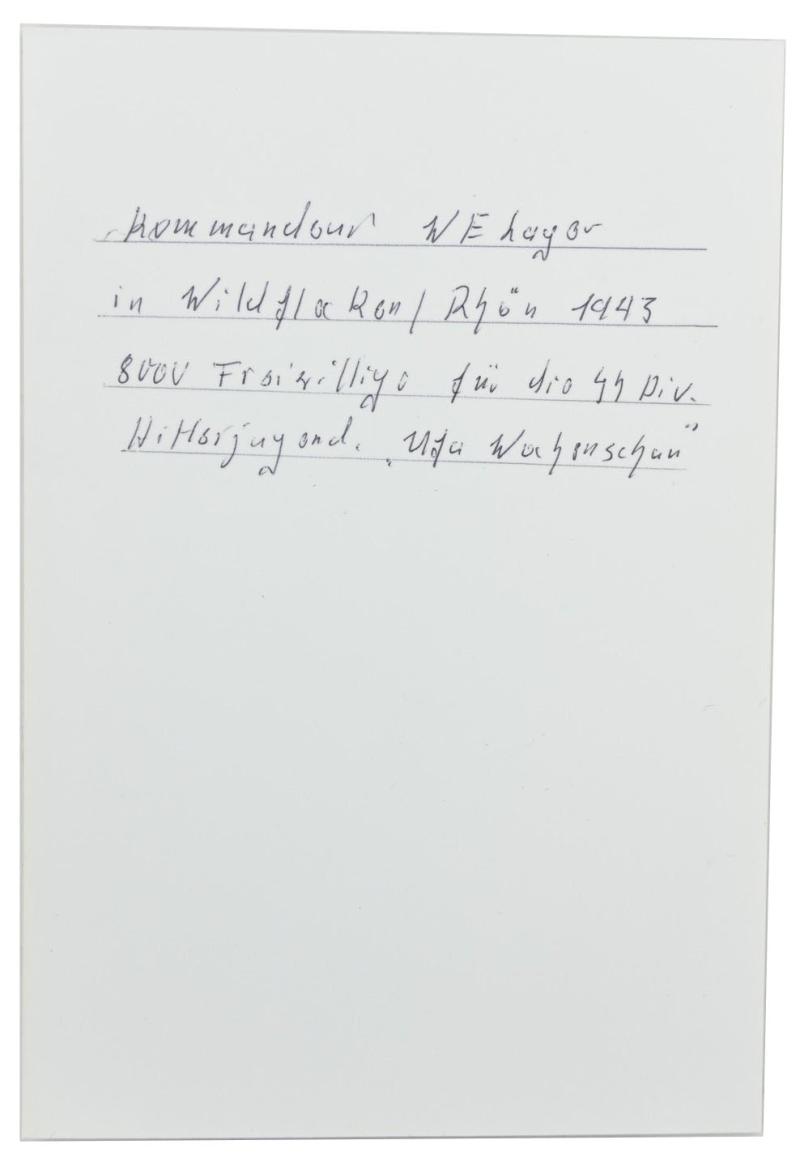 Kommandeur WE Lager
in Wildflecken / Rhön 1943
8000 Freiwillige für die SS Div.
Hitlerjugend. „Ufa Wochenschau"